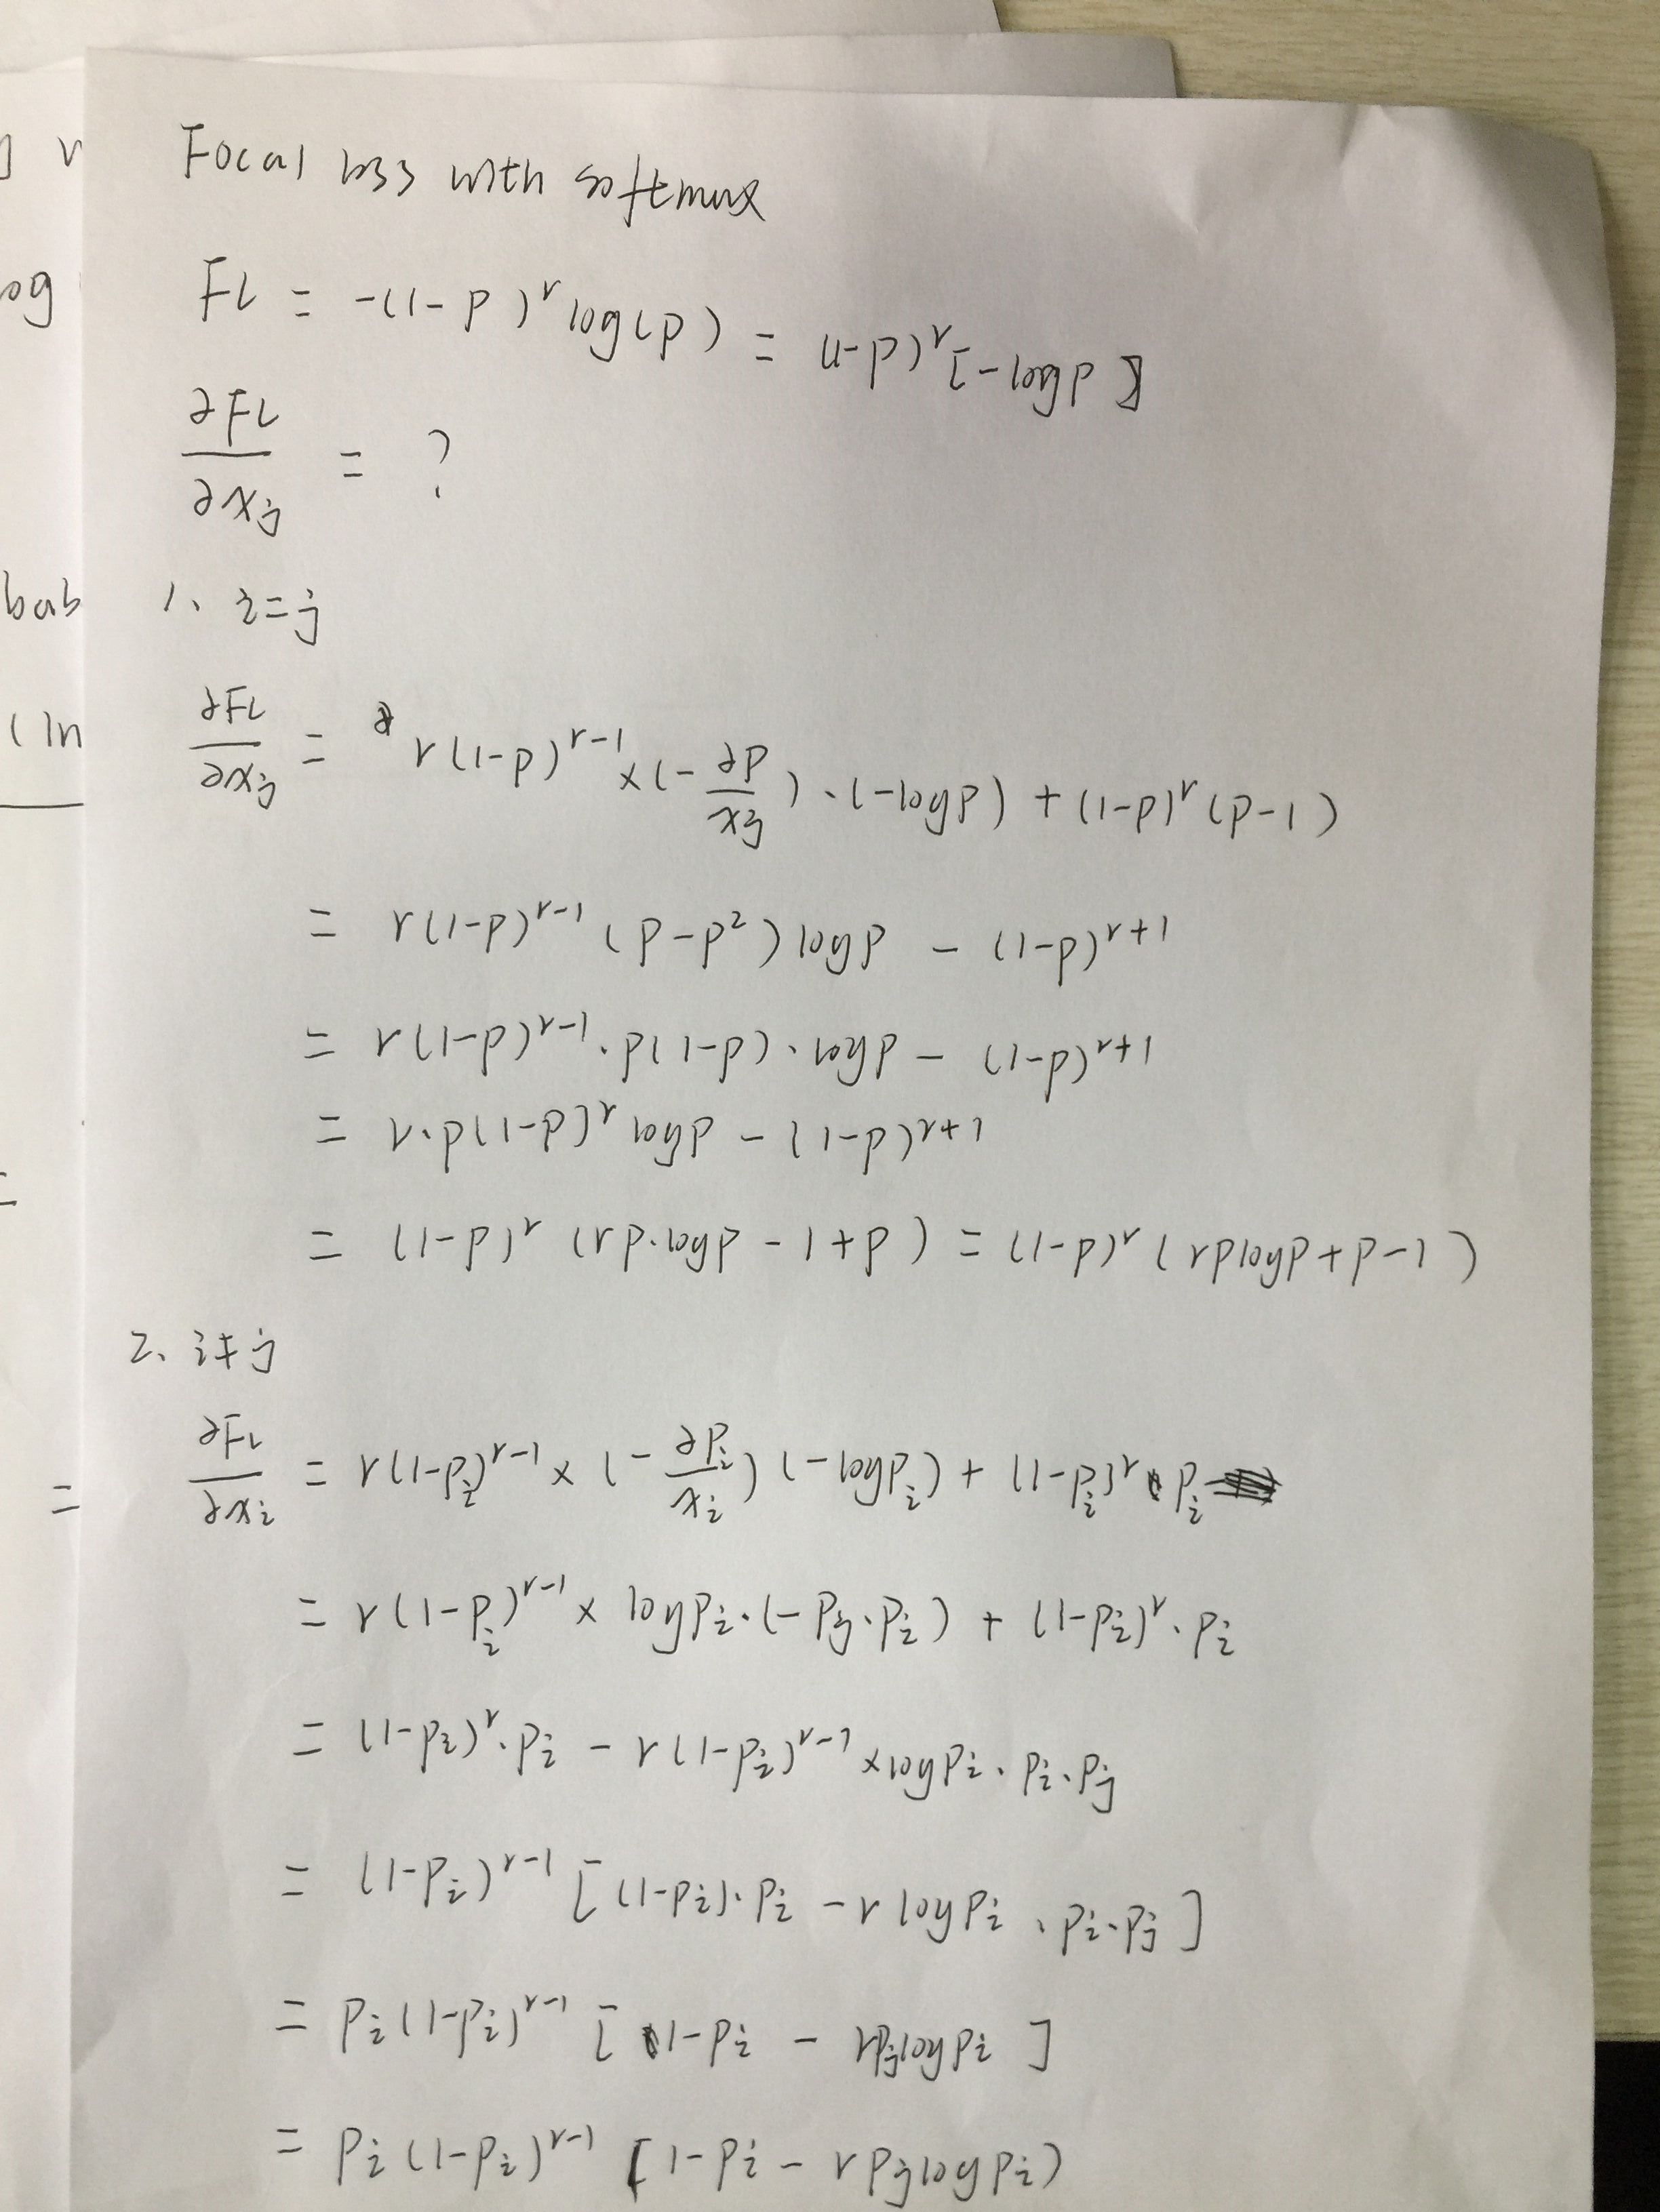 Focal loss with softmax
FL = -(1-p)^r log(p) = (1-p)^r [-log p]
∂FL/∂xj = ?
1、i=j
∂FL/∂xj = r(1-p)^{r-1} × (-∂p/xj)·(-log p) + (1-p)^r (p-1)
= r(1-p)^{r-1} (p-p²) log p - (1-p)^{r+1}
= r(1-p)^{r-1}·p(1-p)·log p - (1-p)^{r+1}
= r·p(1-p)^r log p - (1-p)^{r+1}
= (1-p)^r (rp·log p - 1 + p) = (1-p)^r (rp log p + p - 1)
2、i≠j
∂FL/∂xi = r(1-pi)^{r-1} × (-∂pi/xi) (-log pi) + (1-pi)^r · pi
= r(1-pi)^{r-1} × log pi·(-pj·pi) + (1-pi)^r·pi
= (1-pi)^r·pi - r(1-pi)^{r-1} × log pi·pi·pj
= (1-pi)^{r-1} [(1-pi)·pi - r log pi·pi·pj]
= pi(1-pi)^{r-1} [1-pi - rpj log pi]
= pi(1-pi)^{r-1} (1-pi - rpj log pi)
og
bab
(ln
=